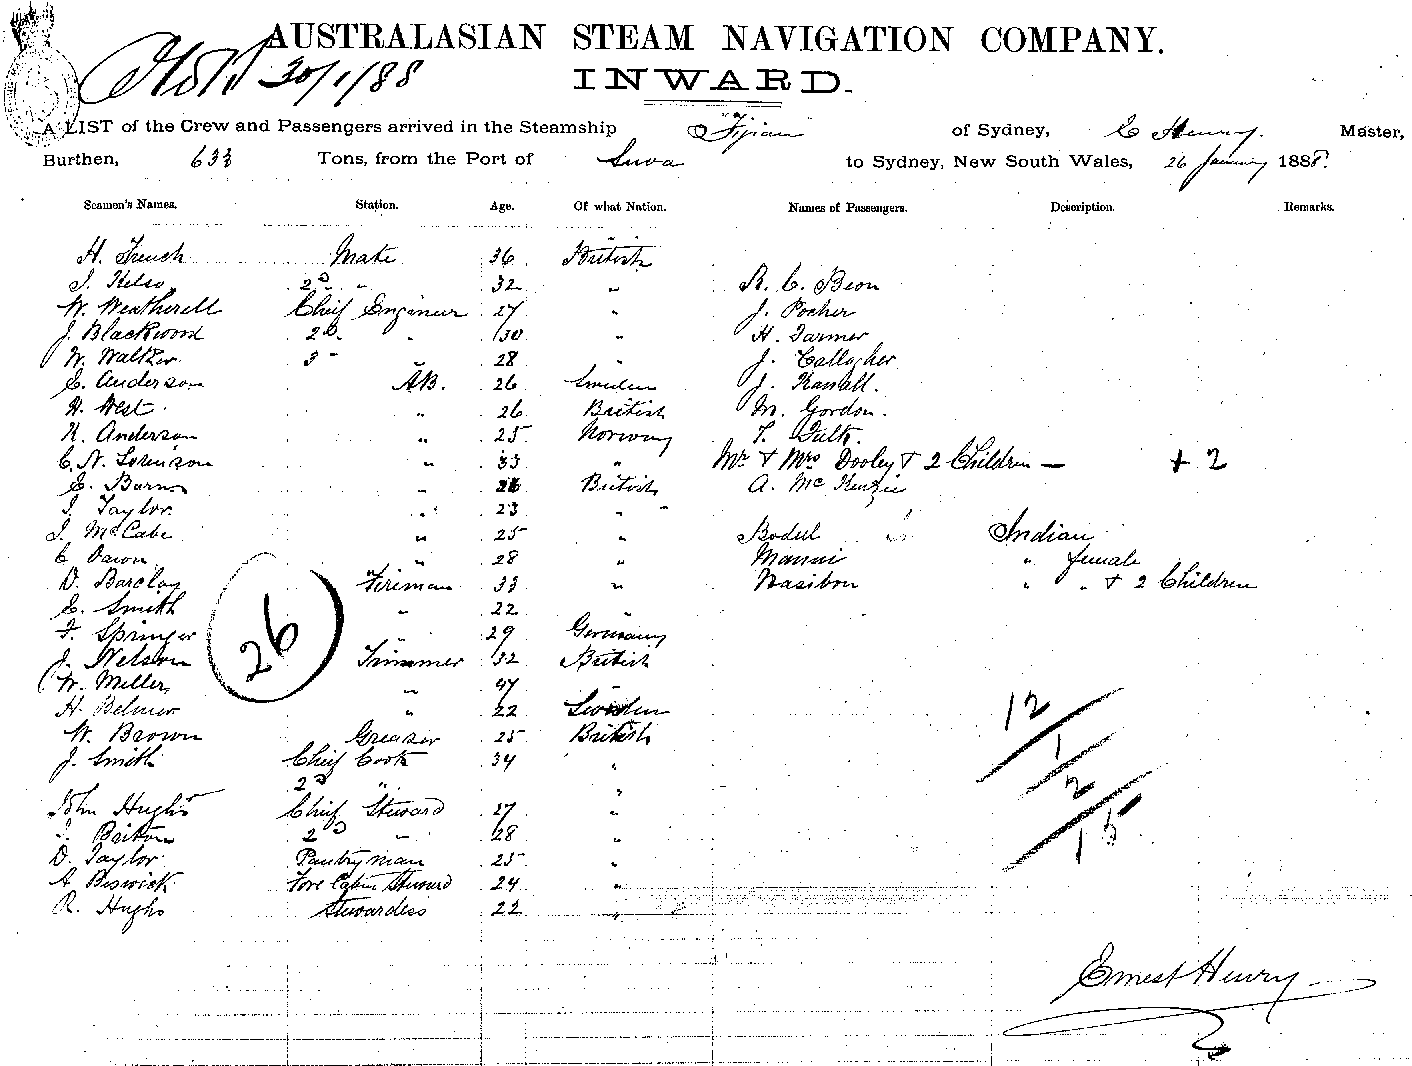 AUSTRALASIAN STEAM NAVIGATION COMPANY.
30/1/88
INWARD.
A LIST of the Crew and Passengers arrived in the Steamship "Fijian of Sydney, E Henry. Master,
Burthen, 633 Tons, from the Port of Suva to Sydney, New South Wales, 26 January 1888.
Seamen's Names. Station. Age. Of what Nation. Names of Passengers. Description. Remarks.
H. French Mate 36 British
J. Kelso 2D " 32 " R. C. Beon
W. Weatherell Chief Engineer 27 " J. Pocher
J. Blackwood 2D " 30 " H. Farmer
W. Walker 3 " " 28 " J. Callagher
E. Anderson AB. 26 Sweden J.
H. West " 26 British M. Gordon.
K. Anderson " 25 Norway T.
C. N. Sorenson " 33 " Mr & Mrs Dooley & 2 Children — + 2
E. Barns " 26 British A. McKenzie
J. Taylor " 23 "
J. McCabe " 25 " Indian
C " 28 " " female
D. Barclay Fireman 33 " Nasibon " " & 2 Children
E. Smith " 22 "
F. Springer " 29 Germany
J. Nelson Trimmer 32 British
W. Miller " 47 "
H. Belmer " 22 Sweden
W. Brown Greaser 25 British
J. Smith Chief Cook 34 "
2D " "
John Hughes Chief Steward 27 "
Briton 2D " 28 "
D. Taylor Pantryman 25 "
A Beswick Fore Cabin Steward 24 "
R. Hughs Stewardess 22 "
26
12
1
2
15
Ernest Henry